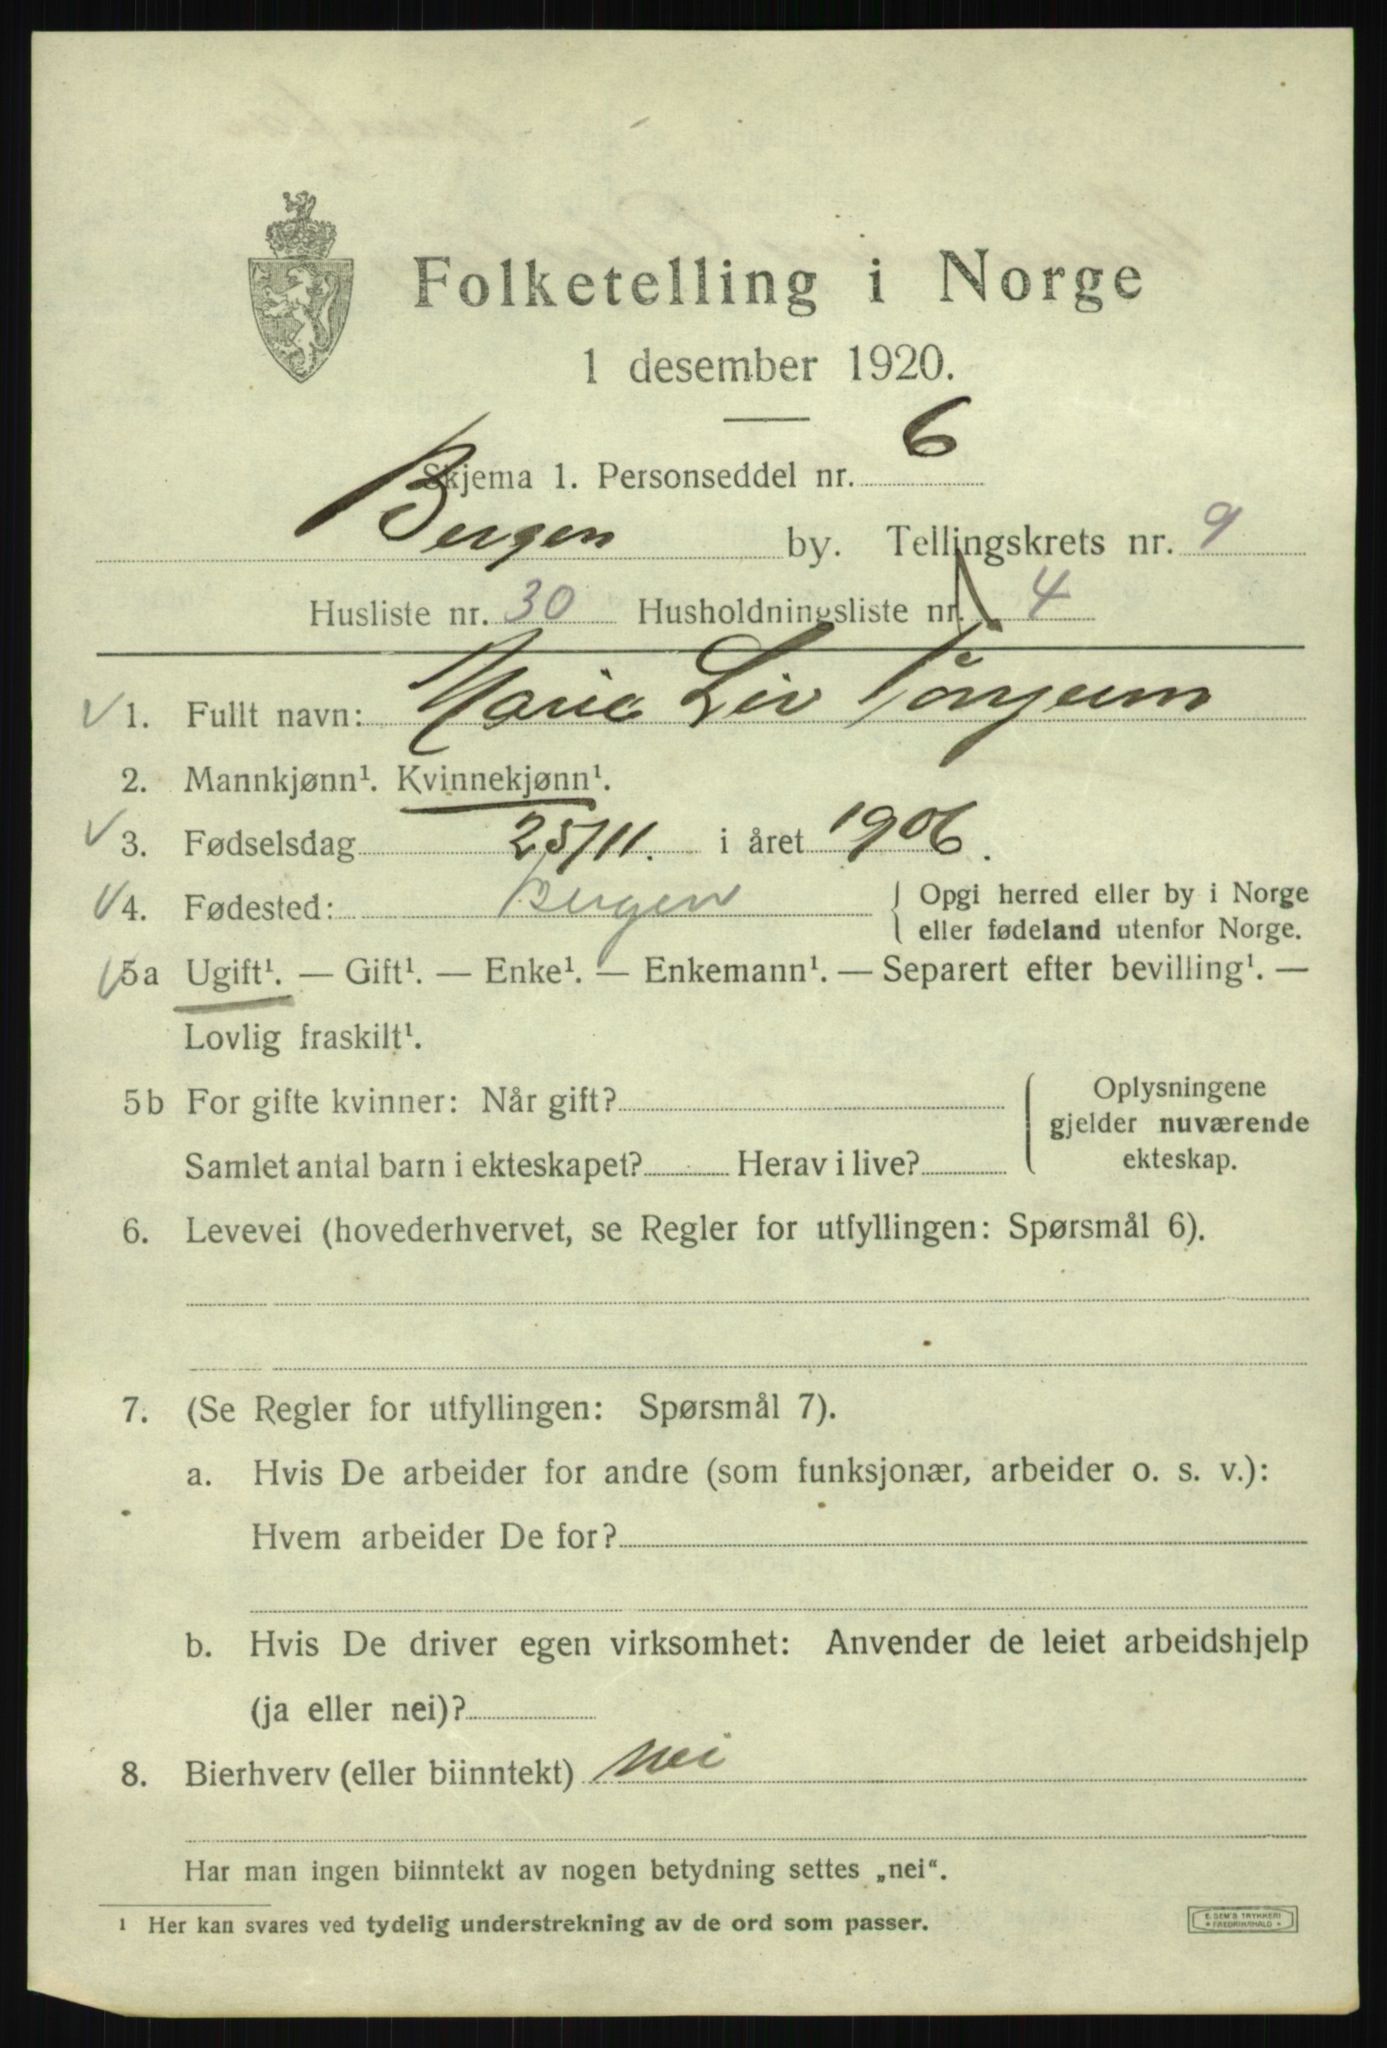 Folketelling i Norge
1 desember 1920.
Skjema 1. Personseddel nr. 6
Bergen by. Tellingskrets nr. 9
Husliste nr. 30 Husholdningsliste nr. 4
1. Fullt navn: Marie Liv
2. Mannkjønn¹. Kvinnekjønn¹.
3. Fødselsdag 25/11. i året 1906.
4. Fødested: Bergen { Opgi herred eller by i Norge
eller fødeland utenfor Norge.
5a Ugift¹. — Gift¹. — Enke¹. — Enkemann¹. — Separert efter bevilling¹. —
Lovlig fraskilt¹.
5b For gifte kvinner: Når gift? { Oplysningene
gjelder nuværende
Samlet antal barn i ekteskapet? Herav i live? ekteskap.
6. Levevei (hovederhvervet, se Regler for utfyllingen: Spørsmål 6).
7. (Se Regler for utfyllingen: Spørsmål 7).
a. Hvis De arbeider for andre (som funksjonær, arbeider o. s. v.):
Hvem arbeider De for?
b. Hvis De driver egen virksomhet: Anvender de leiet arbeidshjelp
(ja eller nei)?
8. Bierhverv (eller biinntekt) nei
Har man ingen biinntekt av nogen betydning settes „nei“.
¹ Her kan svares ved tydelig understrekning av de ord som passer.
E. SEM'S TRYKKERI
* FREDRIKSHALD *